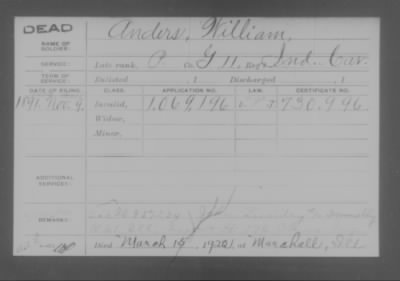 DEAD
Anders, William,
NAME OF SOLDIER:
SERVICE: Late rank, P. Co. G 11, Reg't Ind. Cav.
TERM OF SERVICE: Enlisted , 1 Discharged , 1
DATE OF FILING. CLASS. APPLICATION NO. LAW. CERTIFICATE NO.
1891, Nov. 9. Invalid, 1,069,196 730.996
Widow,
Minor,
ADDITIONAL SERVICES:
REMARKS:
Died March 19, 1920, at Marshall, Ills